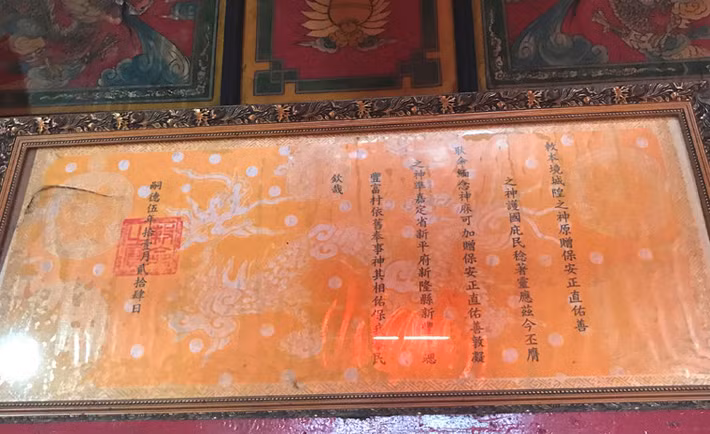 敕本境城隍之神原贈保安正直佑善
之神護國庇民稔著靈應茲今丕膺
耿命緬念神庥可加贈保安正直佑善敦凝
之神準嘉定省新平府新隆縣新
豐富村依舊奉事神其相佑保民
欽哉
嗣德伍年拾壹月貳拾肆日